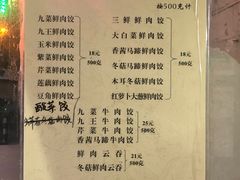 按500克计
九菜鲜肉饺
九王鲜肉饺
玉米鲜肉饺
紫菜鲜肉饺
芹菜鲜肉饺
莲藕鲜肉饺
豆角鲜肉饺
18元
500克
酸菜饺
三鲜鲜肉饺
大白菜鲜肉饺
香茜马蹄鲜肉饺
冬菇马蹄鲜肉饺
木耳冬菇鲜肉饺
红萝卜大葱鲜肉饺
18元
500克
九菜牛肉饺
九王牛肉饺
芹菜牛肉饺
香茜牛肉饺
25元
500克
鲜肉云吞
冬菇鲜肉云吞
21元
500克